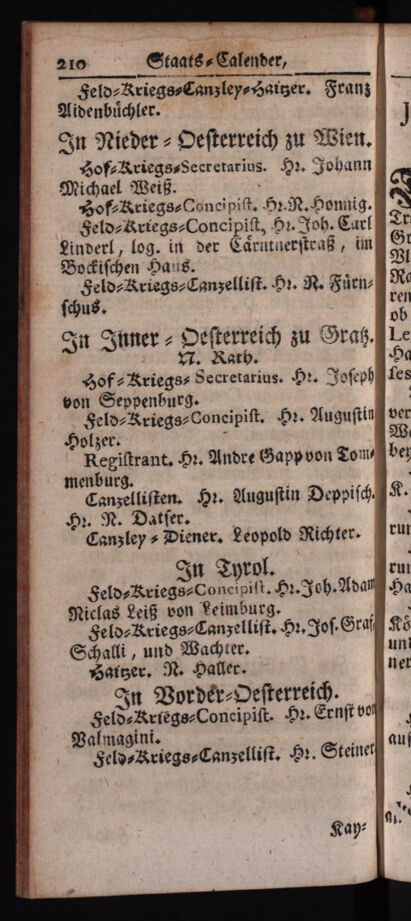 210 Staats-Calender,
Feld-Kriegs-Canzley-Haitzer. Franz
Aidenbüchler.
In Nieder-Oesterreich zu Wien.
Hof-Kriegs-Secretarius. Hr. Johann
Michael Weiß.
Hof-Kriegs-Concipist. Hr. N. Honnig.
Feld-Kriegs-Concipist, Hr. Joh. Carl
Linderl, log. in der Cärntnerstraß, im
Bockischen Haus.
Feld-Kriegs-Canzellist. Hr. N. Fürn-
schus.
In Inner-Oesterreich zu Gratz.
N. Rath.
Hof-Kriegs-Secretarius. Hr. Joseph
von Seppenburg.
Feld-Kriegs-Concipist. Hr. Augustin
Holzer.
Registrant. Hr. Andre Gapp von Tom-
menburg.
Canzellisten. Hr. Augustin Deppisch.
Hr. N. Datser.
Canzley-Diener. Leopold Richter.
In Tyrol.
Feld-Kriegs-Concipist. Hr. Joh. Adam
Niclas Leiß von Leimburg.
Feld-Kriegs-Canzellist. Hr. Jos. Graf,
Schalli, und Wachter.
Haitzer. N. Haller.
In Vorder-Oesterreich.
Feld-Kriegs-Concipist. Hr. Ernst von
Valmagini.
Feld-Kriegs-Canzellist. Hr. Steiner
Kay-